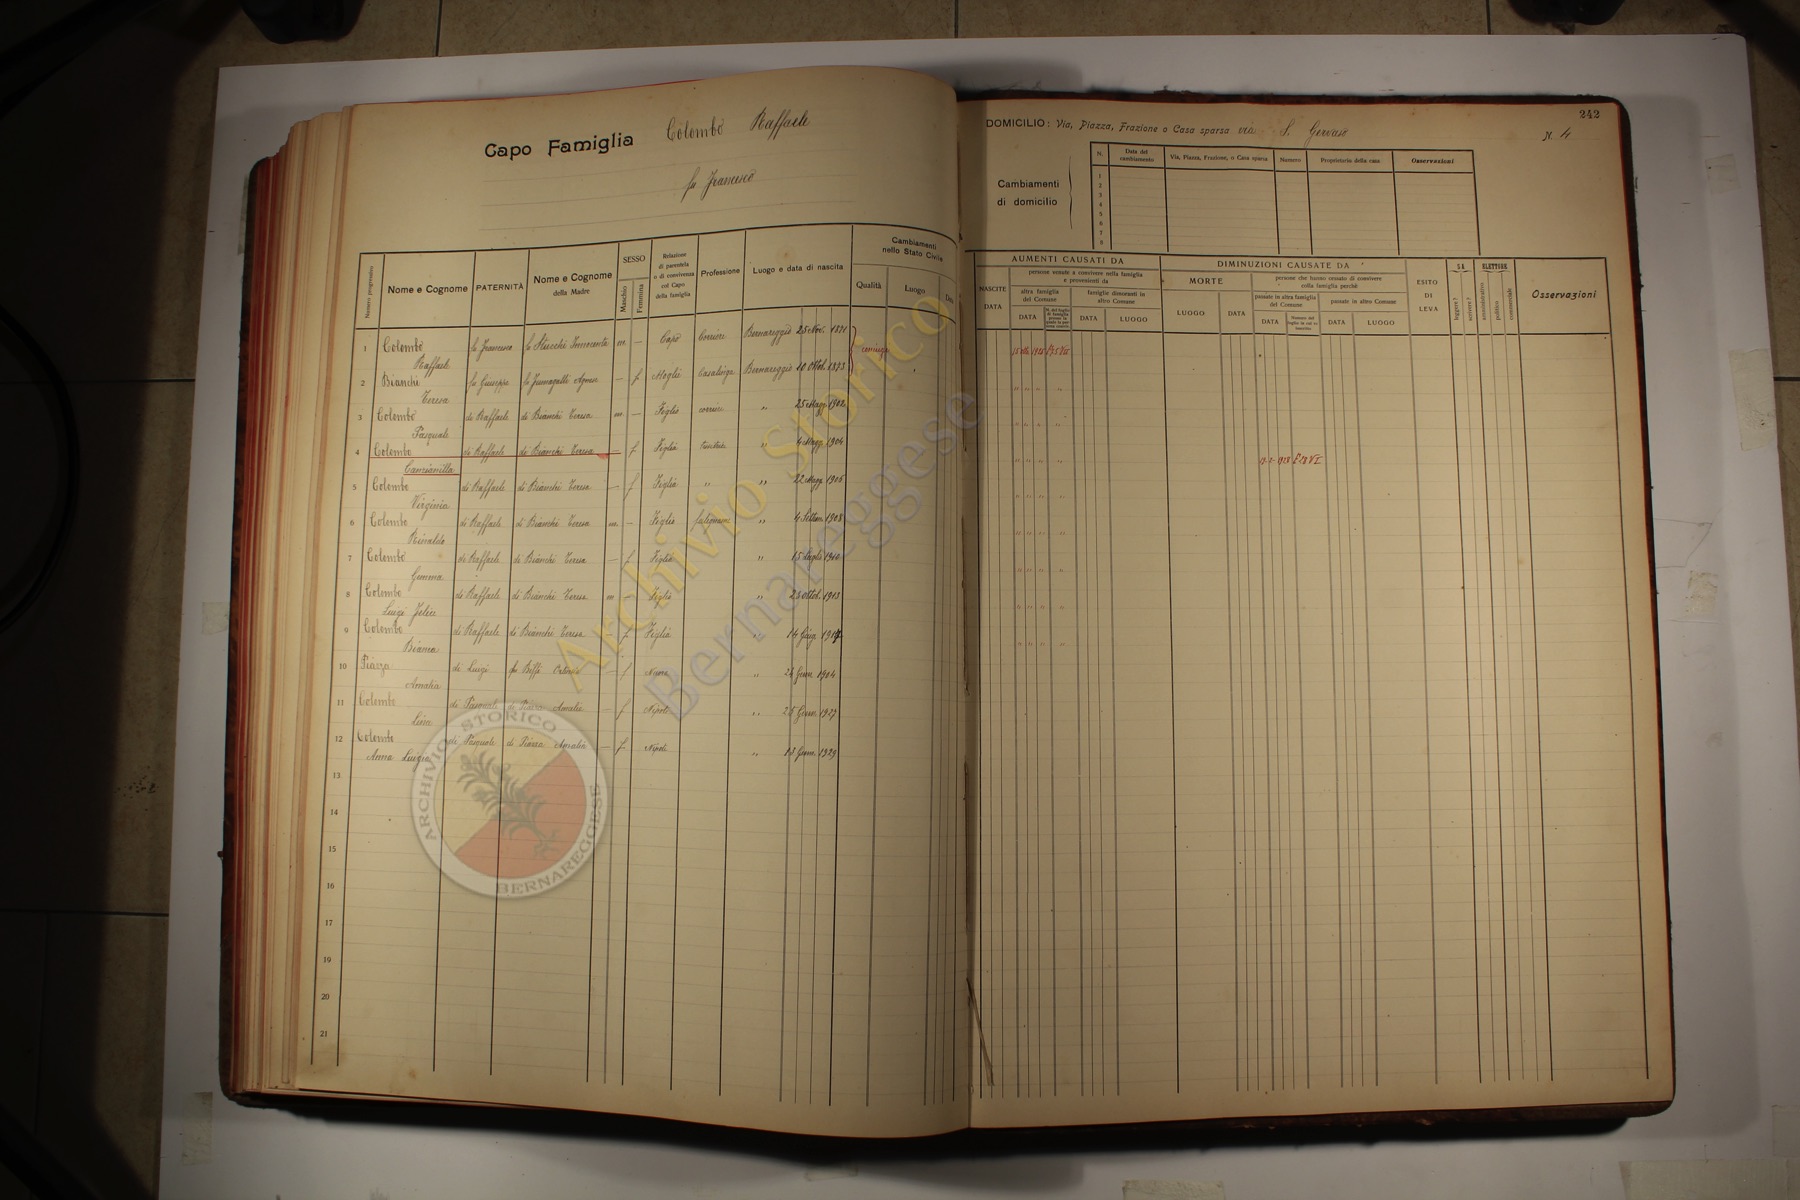 Capo Famiglia Colombo Raffaele
fu Francesco
242
DOMICILIO: Via, Piazza, Frazione o Casa sparsa via S. Gervaso N. 4
Cambiamenti
di domicilio
N. Data del cambiamento Via, Piazza, Frazione, o Casa sparsa Numero Proprietario della casa Osservazioni
1
2
3
4
5
6
7
8
Numero progressivo Nome e Cognome PATERNITÀ Nome e Cognome della Madre SESSO Maschio Femmina Relazione di parentela o di convivenza col Capo della famiglia Professione Luogo e data di nascita Cambiamenti nello Stato Civile Qualità Luogo
AUMENTI CAUSATI DA
NASCITE DATA persone venute a convivere nella famiglia e provenienti da
altra famiglia del Comune DATA
famiglie dimoranti in altro Comune DATA LUOGO
DIMINUZIONI CAUSATE DA
MORTE LUOGO DATA
persone che hanno cessato di convivere colla famiglia perchè
passate in altra famiglia del Comune DATA
passate in altro Comune DATA LUOGO
ESITO DI LEVA
SA leggere? scrivere?
ELETTORE amministrativo politico commerciale
Osservazioni
1 Colombo Raffaele fu Francesco fu Stucchi Innocenta m — Capo Bernareggio 25 Nov. 1871
2 Bianchi Teresa fu Giuseppe fu Fumagalli Agnese — f Moglie Casalinga Bernareggio 10 Ottob. 1873
3 Colombo Pasquale di Raffaele di Bianchi Teresa m — Figlio " 25 Magg. 1902
4 Colombo di Raffaele di Bianchi Teresa — f Figlia " 4 Magg. 1904
5 Colombo Virginia di Raffaele di Bianchi Teresa — f Figlia " " 22 Magg. 1906
6 Colombo Rinaldo di Raffaele di Bianchi Teresa m — Figlio falegname " 4 Settem. 1908
7 Colombo Gemma di Raffaele di Bianchi Teresa — f Figlia " 15 Luglio 1910
8 Colombo Luigi Felice di Raffaele di Bianchi Teresa m — Figlio " 25 Ottob. 1913
9 Colombo Bianca di Raffaele di Bianchi Teresa — f Figlia " 14 1917
10 Piazza Amalia di Luigi fu Biffi — f Nuora " 24 Genn. 1904
11 Colombo Lina di Pasquale di Piazza Amalia — f Nipote " 25 Genn. 1927
12 Colombo Anna Luigia di Pasquale di Piazza Amalia — f Nipote " 13 Genn. 1929
13
14
15
16
17
18
19
20
21
Archivio Storico
Bernareggese
ARCHIVIO STORICO
BERNAREGGESE